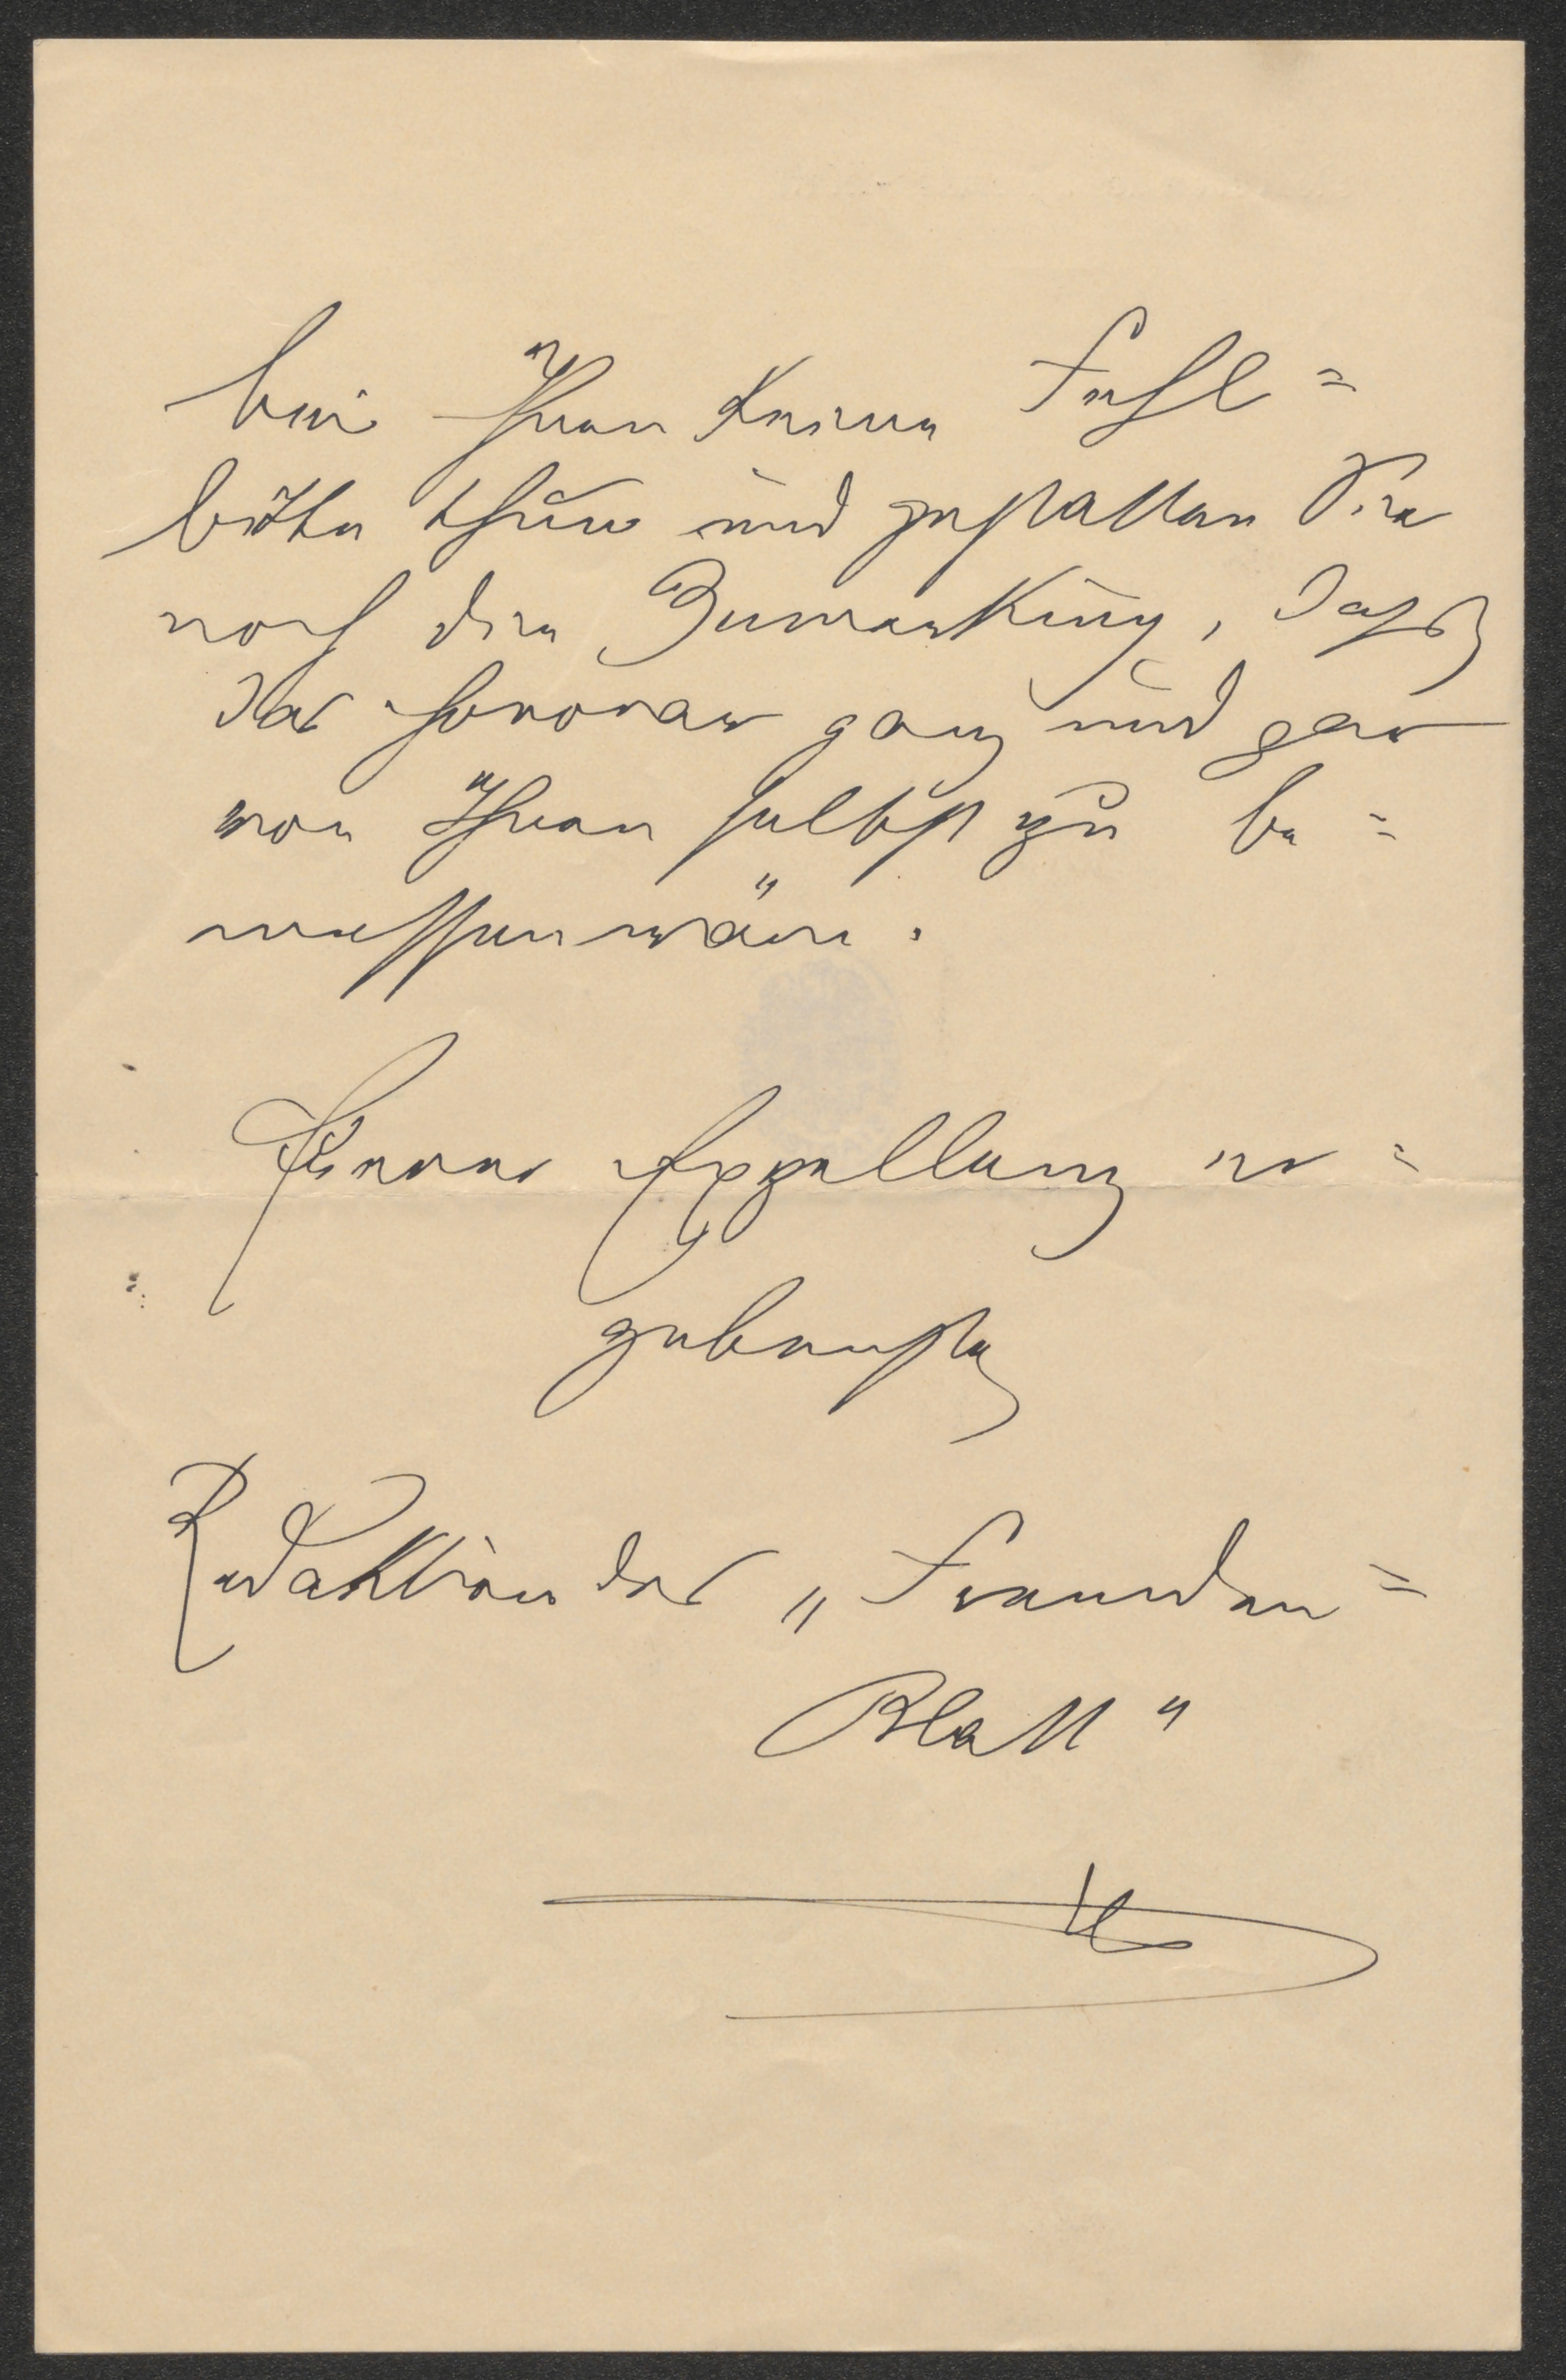 bei Ihnen keine Fehl=
bitte thun und gestatten Sie
noch die Bemerkung, dass
das Honorar ganz und gar
von Ihnen selbst zu be=
messen wäre.
Eurer Exzellenz er=
gebenste
Redaktion des „Fremden=
Blatt"